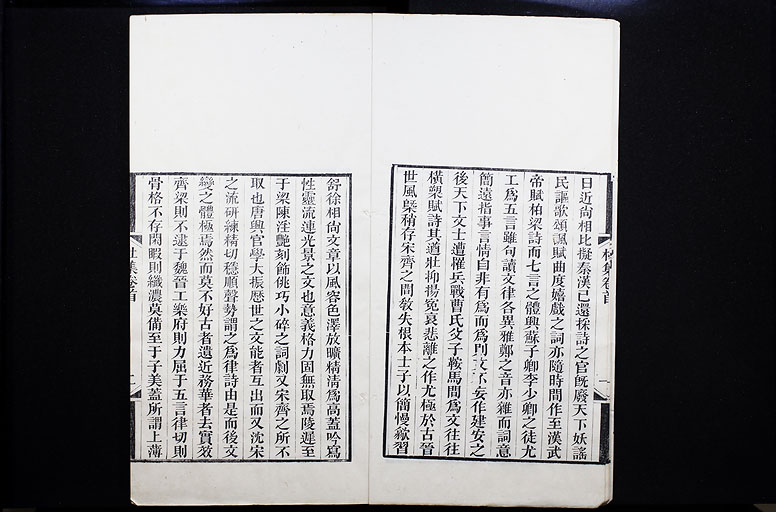 日近尙相比擬秦漢已還採詩之官旣廢天下妖謠
民謳歌頌諷賦曲度嬉戲之詞亦隨時間作至漢武
帝賦柏梁詩而七言之體興蘇子卿李少卿之徒尤
工爲五言雖句讀文律各異雅鄭之音亦雜而詞意
簡遠指事言情自非有爲而爲則文不妄作建安之
後天下文士遭罹兵戰曹氏父子鞍馬間爲文往往
橫槊賦詩其遒壯抑揚寃哀悲離之作尤極於古晉
世風槩稍存宋齊之間敎失根本士子以簡慢歙習
舒徐相尙文章以風容色澤放曠精淸爲高蓋吟寫
性靈流連光景之文也意義格力固無取焉陵遲至
于梁陳淫艷刻飾佻巧小碎之詞劇又宋齊之所不
取也唐興官學大振歷世之文能者互出而又沈宋
之流研練精切穩順聲勢謂之爲律詩由是而後文
變之體極焉然而莫不好古者遺近務華者去實效
齊梁則不逮于魏晉工樂府則力屈于五言律切則
骨格不存閑暇則纖濃莫備至于子美蓋所謂上薄
杜集卷首
二